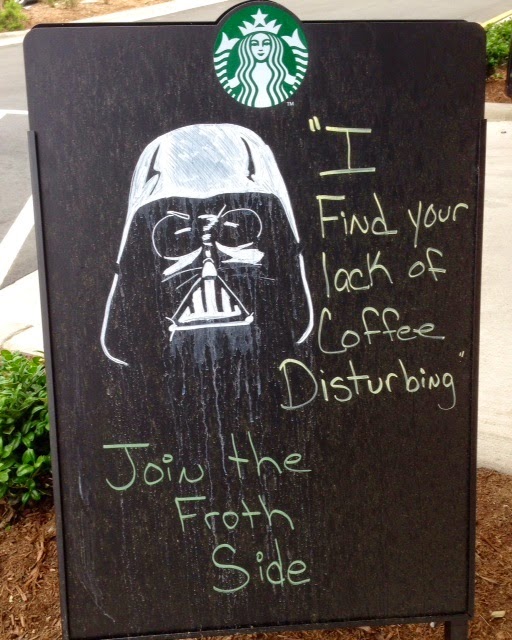 "I
Find your
lack of
Coffee
Disturbing"
Join the
Froth
Side